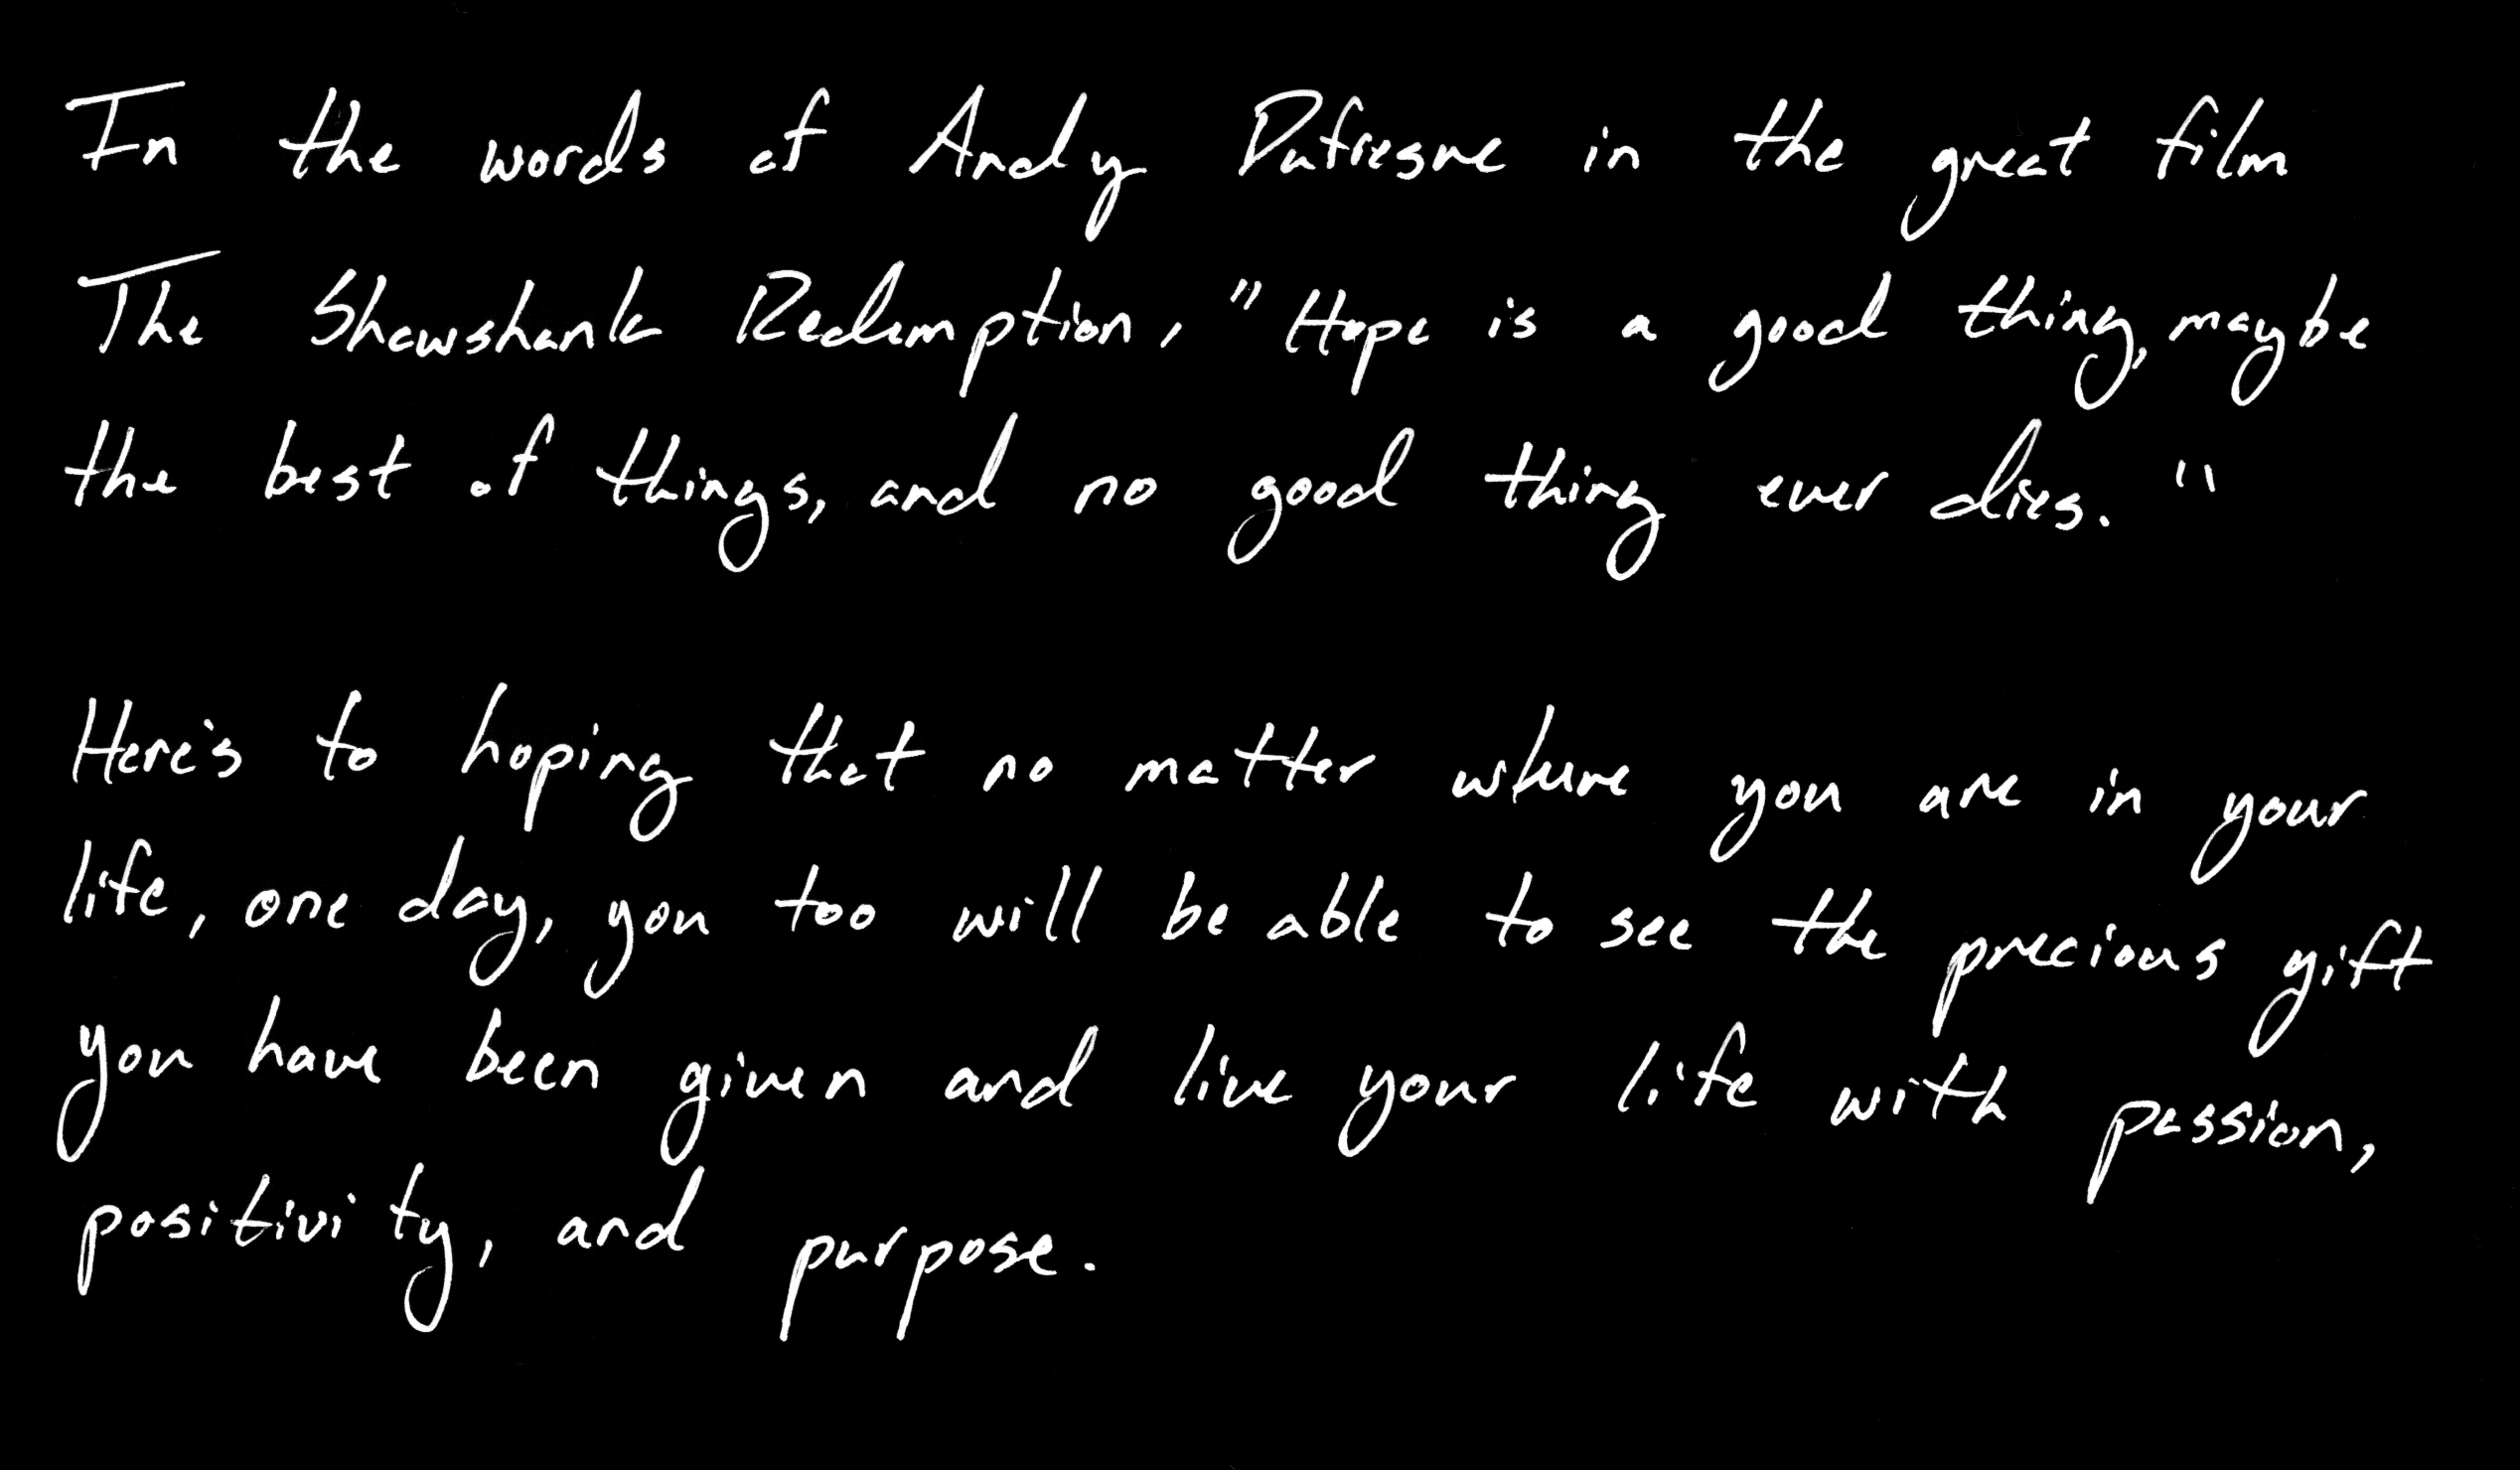 In the words of Andy Dufresne in the great film
The Shawshank Redemption, "Hope is a good thing, maybe
the best of things, and no good thing ever dies."
Here's to hoping that no matter where you are in your
life, one day, you too will be able to see the precious gift
you have been given and live your life with passion,
positivity, and purpose.